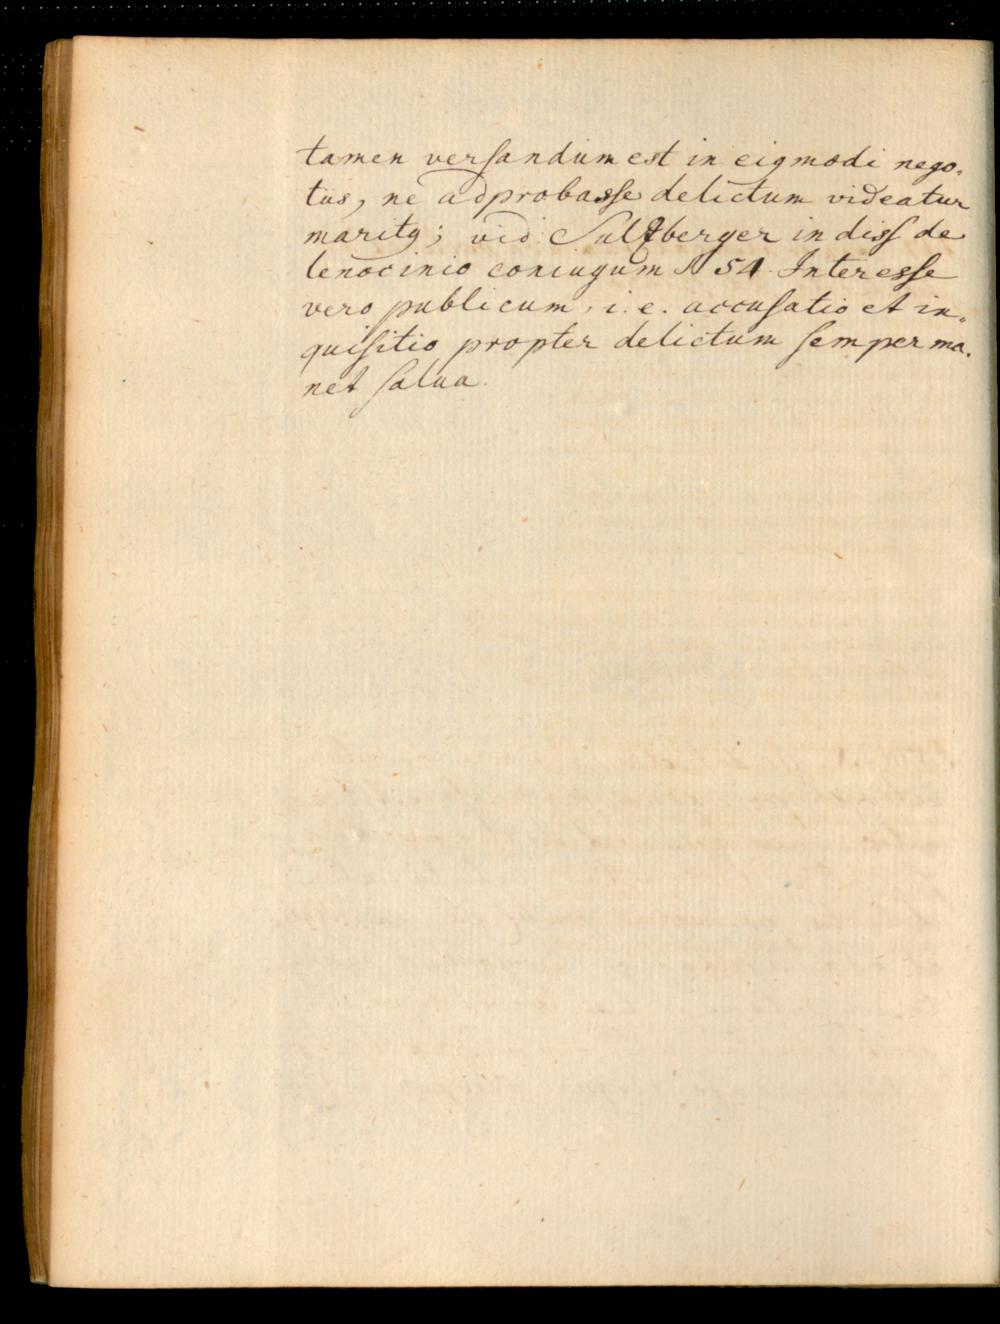 tamen versandum est in eiqmodi nego-
tiis, ne adprobasse delictum videatur
maritq; vid. Sulzberger in diss de
lenocinio coniugum N 54. Interesse
vero publicum, i. e. accusatio et in-
quisitio propter delictum semper ma-
net salua.